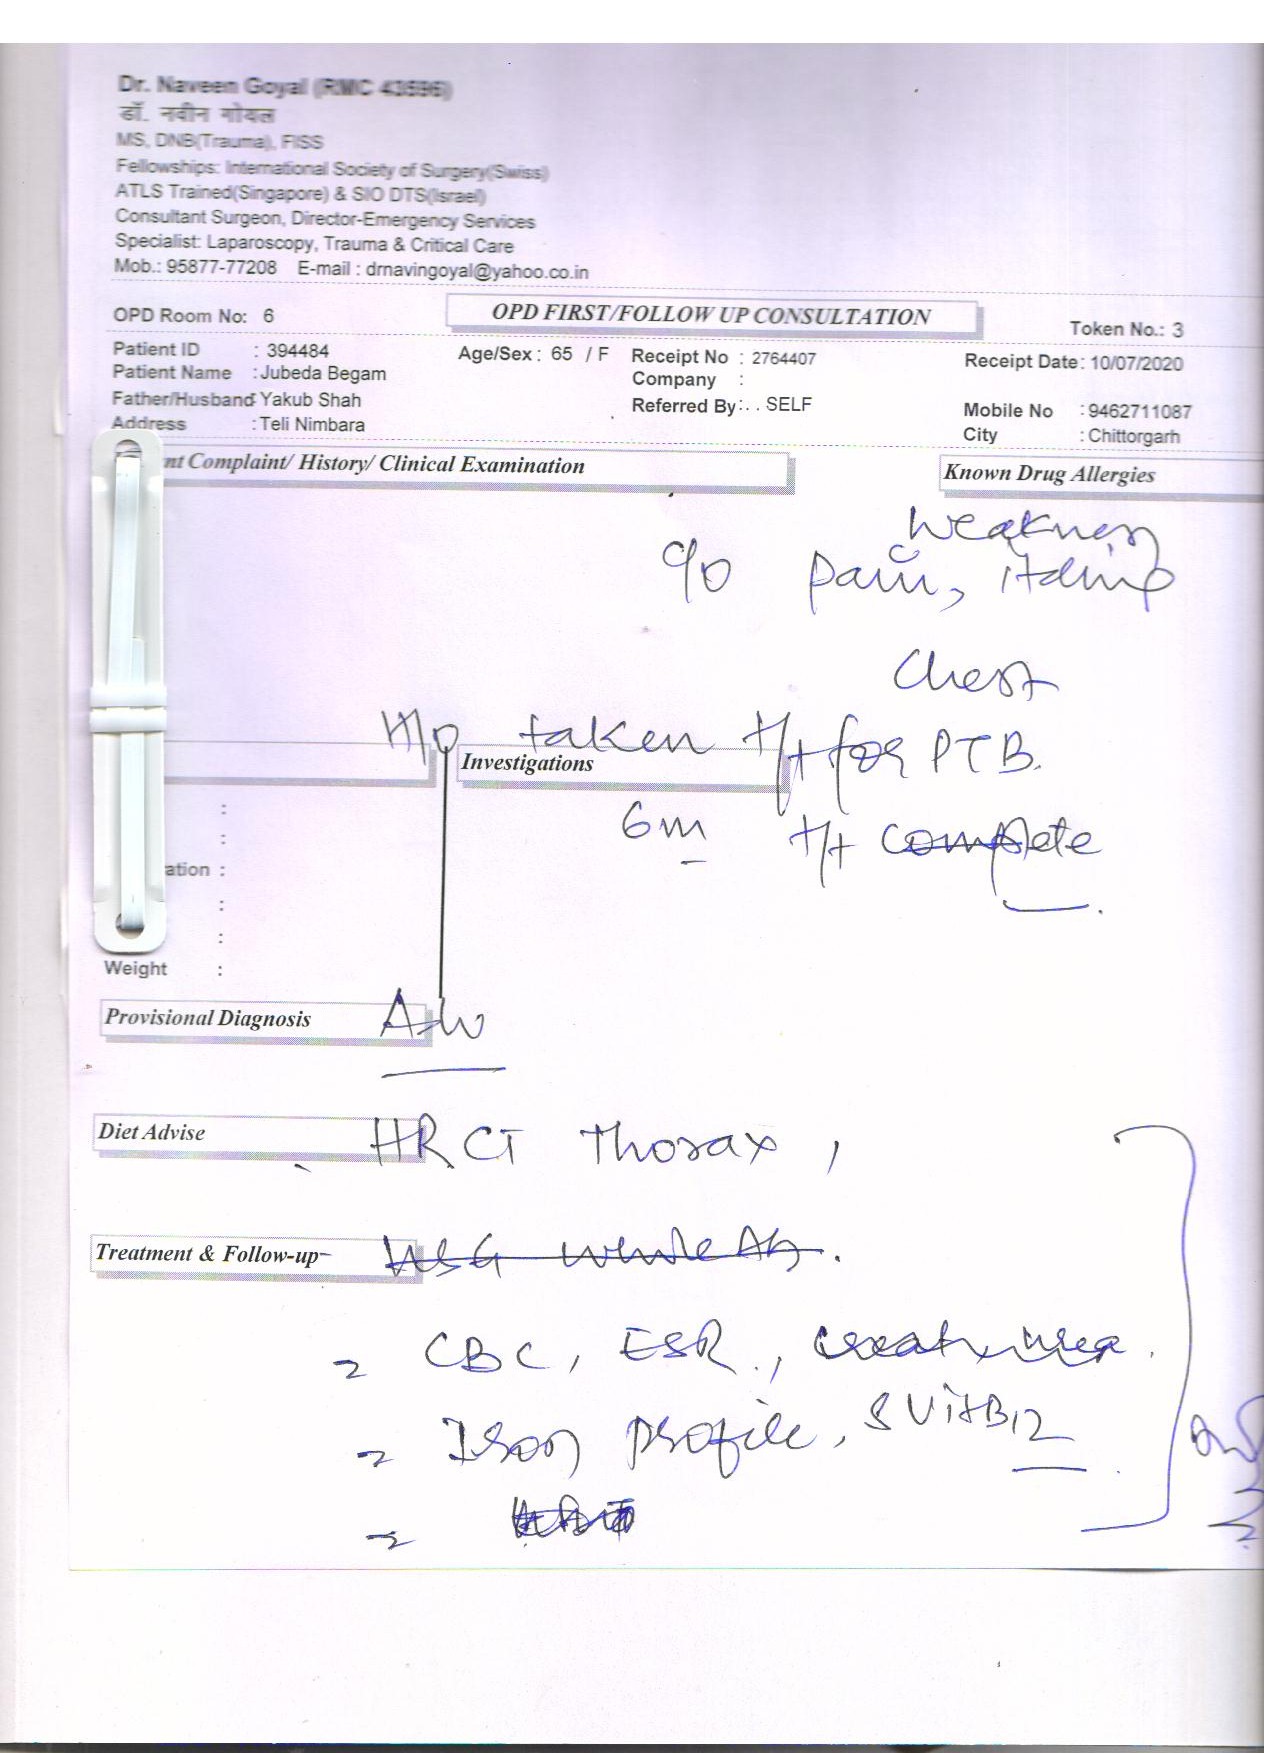 Dr. Naveen Goyal (RMC 43596)
डॉ. नवीन गोयल
MS, DNB(Trauma), FISS
Fellowships: International Society of Surgery(Swiss)
ATLS Trained(Singapore) & SIO DTS(Israel)
Consultant Surgeon, Director-Emergency Services
Specialist: Laparoscopy, Trauma & Critical Care
Mob.: 95877-77208 E-mail : drnavingoyal@yahoo.co.in
OPD Room No: 6 OPD FIRST/FOLLOW UP CONSULTATION Token No.: 3
Patient ID : 394484 Age/Sex : 65 / F Receipt No : 2764407 Receipt Date: 10/07/2020
Patient Name : Jubeda Begam Company :
Father/Husband Yakub Shah Referred By:. . SELF Mobile No :9462711087
Address : Teli Nimbara City : Chittorgarh
nt Complaint/ History/ Clinical Examination Known Drug Allergies
Weakness
c/o Pain,
Chest
H/o taken t/t for PTB.
Investigations
6m t/t complete
:
:
ation :
:
:
Weight :
Provisional Diagnosis Adv
Diet Advise HRCT Thorax,
Treatment & Follow-up
CBC, ESR, creat, urea.
Iron profile, S VitB12